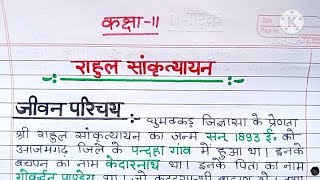 कक्षा-11
राहुल सांकृत्यायन
जीवन परिचय - घुमक्कड़ जिज्ञासा के प्रेणता
श्री राहुल सांकृत्यायन का जन्म सन् 1893 ई. को
आजमगढ़ जिले के पन्दहा गांव में हुआ था। इनके
बचपन का नाम केदारनाथ था। इनके पिता का नाम
गोवर्धन पाण्डेय था। जो